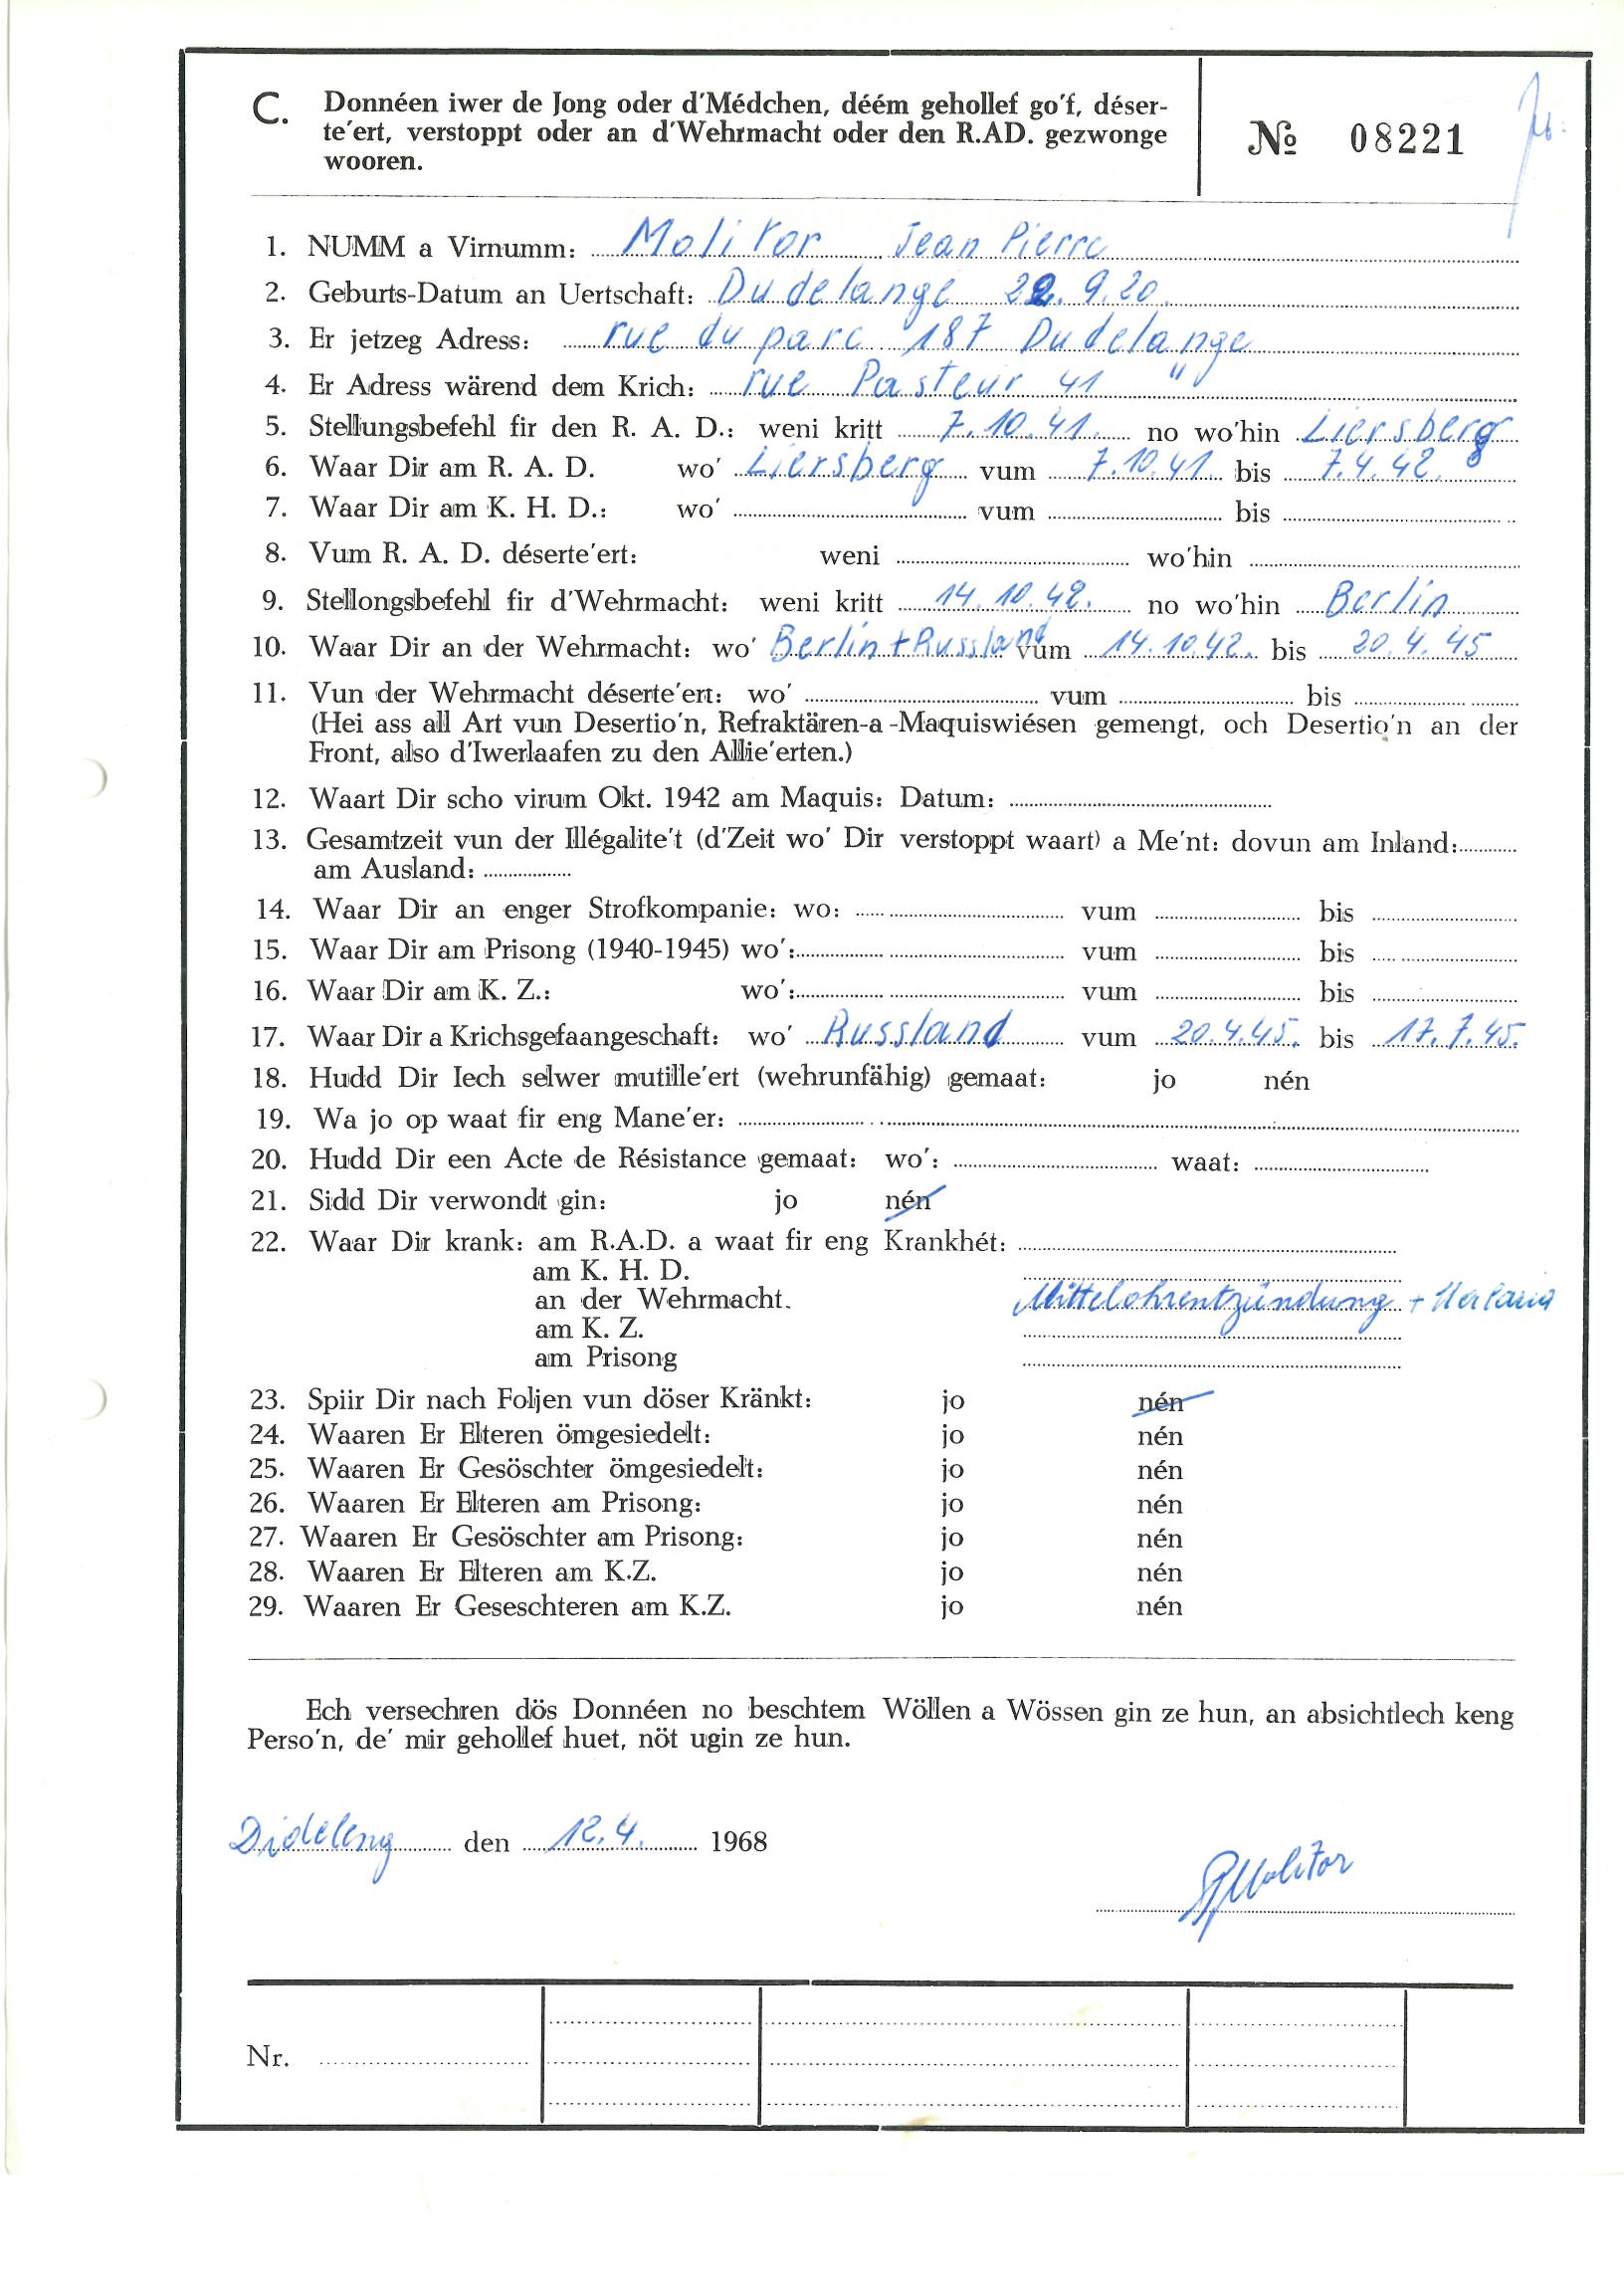 C. Donnéen iwer de Jong oder d'Médchen, déém gehollef go'f, déser-
te'ert, verstoppt oder an d'Wehrmacht oder den R.AD. gezwonge
wooren.
№ 08221
1. NUMM a Virnumm: Molitor Jean Pierre
2. Geburts-Datum an Uertschaft: Dudelange 22.9.20.
3. Er jetzeg Adress: rue du parc 187 Dudelange
4. Er Adress wärend dem Krich: rue Pasteur 41 "
5. Stellungsbefehl fir den R. A. D.: weni kritt 7.10.41. no wo'hin Liersberg
6. Waar Dir am R. A. D. wo' Liersberg vum 7.10.41. bis 7.4.42.
7. Waar Dir am K. H. D.: wo' vum bis
8. Vum R. A. D. déserte'ert: weni wo'hin
9. Stellongsbefehl fir d'Wehrmacht: weni kritt 14.10.42. no wo'hin Berlin
10. Waar Dir an der Wehrmacht: wo' Berlin + Russland vum 14.10.42. bis 20.4.45
11. Vun der Wehrmacht déserte'ert: wo' vum bis
(Hei ass all Art vun Desertio'n, Refraktären-a-Maquiswiésen gemengt, och Desertio'n an der
Front, also d'Iwerlaafen zu den Allie'erten.)
12. Waart Dir scho virum Okt. 1942 am Maquis: Datum:
13. Gesamtzeit vun der Illégalite't (d'Zeit wo' Dir verstoppt waart) a Me'nt: dovun am Inland:
am Ausland:
14. Waar Dir an enger Strofkompanie: wo: vum bis
15. Waar Dir am Prisong (1940-1945) wo': vum bis
16. Waar Dir am K. Z.: wo': vum bis
17. Waar Dir a Krichsgefaangeschaft: wo' Russland vum 20.4.45. bis 17.7.45.
18. Hudd Dir Iech selwer mutille'ert (wehrunfähig) gemaat: jo nén
19. Wa jo op waat fir eng Mane'er:
20. Hudd Dir een Acte de Résistance gemaat: wo': waat:
21. Sidd Dir verwondt gin: jo nén
22. Waar Dir krank: am R.A.D. a waat fir eng Krankhét:
am K. H. D.
an der Wehrmacht. Mittelohrentzündung + Malaria
am K. Z.
am Prisong
23. Spiir Dir nach Foljen vun döser Kränkt: jo nén
24. Waaren Er Elteren ömgesiedelt: jo nén
25. Waaren Er Gesöschter ömgesiedelt: jo nén
26. Waaren Er Elteren am Prisong: jo nén
27. Waaren Er Gesöschter am Prisong: jo nén
28. Waaren Er Elteren am K.Z. jo nén
29. Waaren Er Geseschteren am K.Z. jo nén
Ech versechren dös Donnéen no beschtem Wöllen a Wössen gin ze hun, an absichtlech keng
Perso'n, de' mir gehollef huet, nöt ugin ze hun.
Dideleng den 12.4. 1968
JPMolitor
Nr.